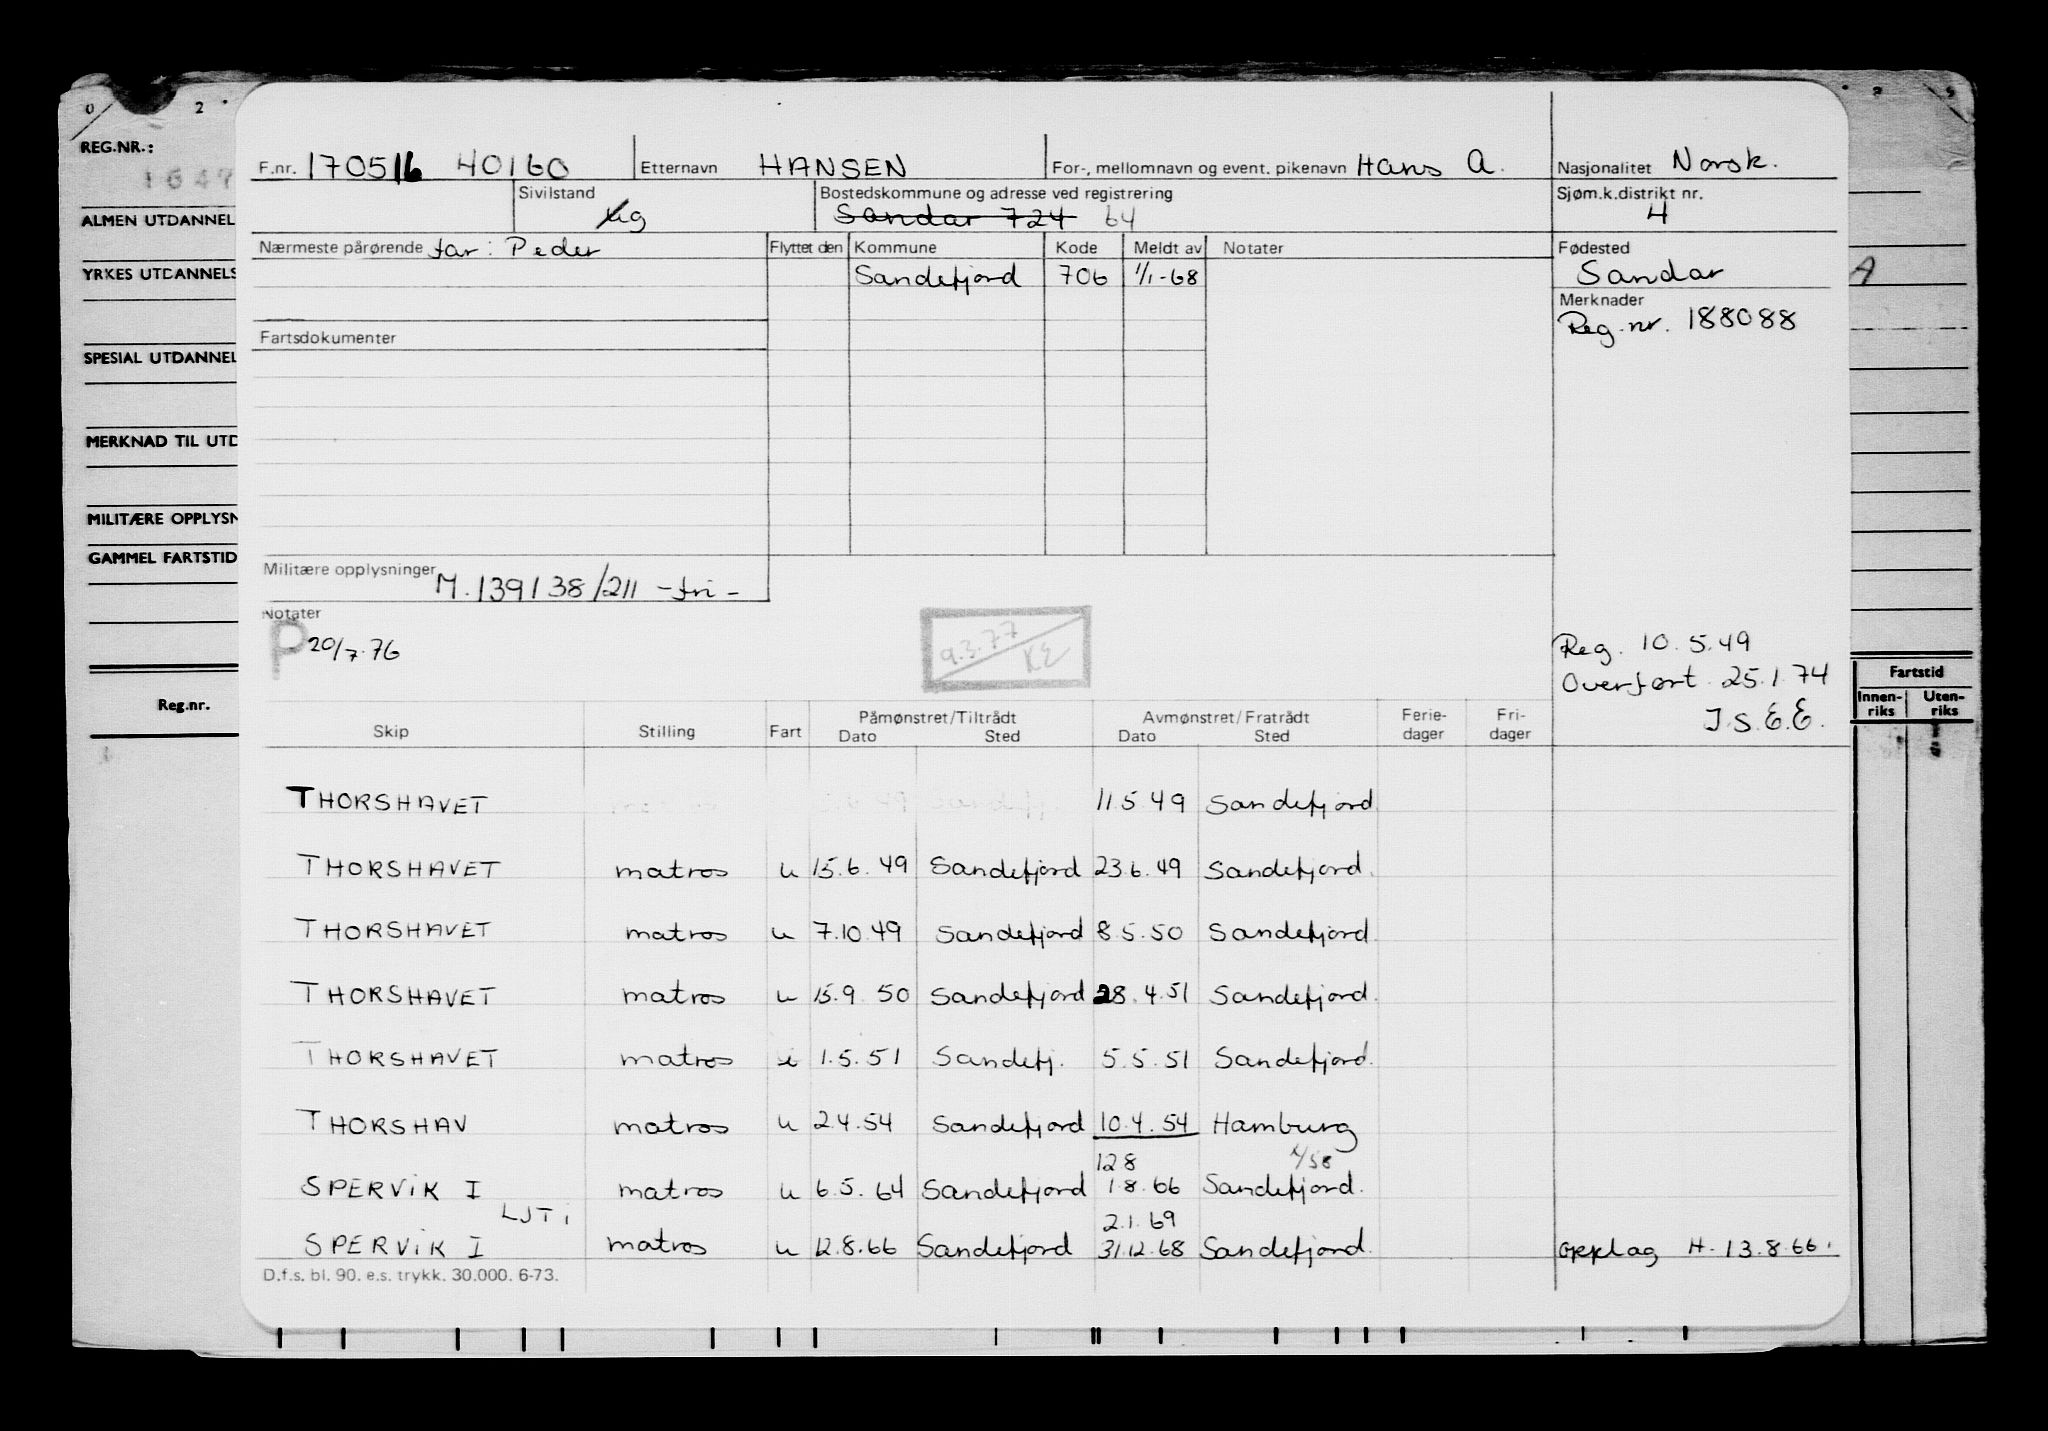 0 2
REG.NR.:
ALMEN UTDANNEL
YRKES UTDANNELS
SPESIAL UTDANNEL
MERKNAD TIL UTD
MILITÆRE OPPLYSN
GAMMEL FARTSTID
Reg.nr.
F.nr. 170516 40160 Etternavn HANSEN For-, mellomnavn og event. pikenavn Hans A. Nasjonalitet Norsk.
Sivilstand ug Bostedskommune og adresse ved registrering Sandar 724 64 Sjøm.k.distrikt nr. 4
Nærmeste pårørende far: Peder Flyttet den Kommune Kode Meldt av Notater Fødested
Sandefjord 706 1/1-68 Sandar
A
Merknader
Reg.nr. 188088
Fartsdokumenter
Militære opplysninger M.139138/211 -fri-
Notater
P 20/7.76
9.3.77
KE
Reg. 10.5.49
Overført 25.1.74
J.S.E.E.
Fartstid
Innen-riks Uten-riks
Skip Stilling Fart Påmønstret/Tiltrådt Dato Sted Avmønstret/Fratrådt Dato Sted Ferie-dager Fri-dager
THORSHAVET 11.5.49 Sandefjord
THORSHAVET matros u 15.6.49 Sandefjord 23.6.49 Sandefjord.
THORSHAVET matros u 7.10.49 Sandefjord 8.5.50 Sandefjord.
THORSHAVET matros u 15.9.50 Sandefjord 28.4.51 Sandefjord.
THORSHAVET matros i 1.5.51 Sandefj. 5.5.51 Sandefjord.
THORSHAV matros u 2.4.54 Sandefjord 10.4.54 Hamburg
12.8 1/58
SPERVIK I matros u 6.5.64 Sandefjord 1.8.66 Sandefjord.
LJTI 2.1.69
SPERVIK I matros u 12.8.66 Sandefjord 31.12.68 Sandefjord. opplag H. 13.8.66.
D.f.s. bl. 90. e.s. trykk. 30.000. 6-73.